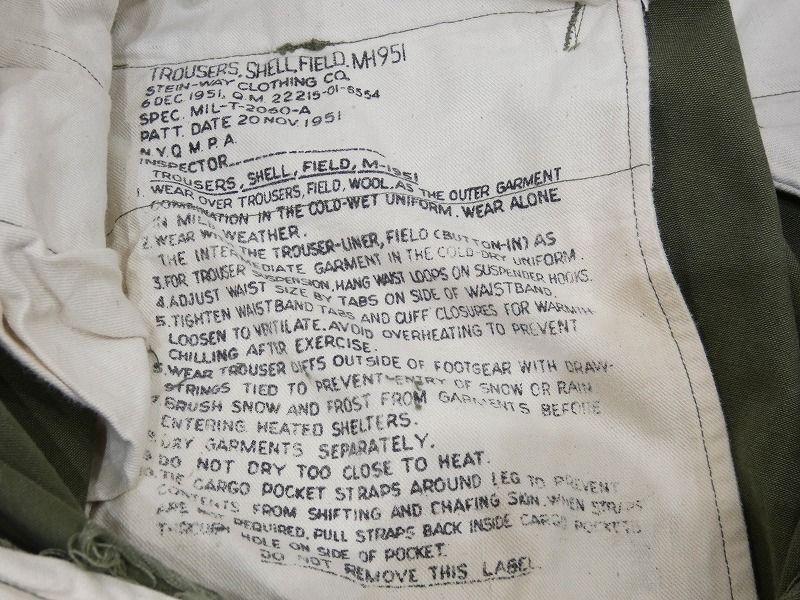 TROUSERS, SHELL, FIELD, M-1951
STEIN-WAY CLOTHING CO.
6 DEC. 1951, Q.M. 22215-OI-8554
SPEC. MIL-T-2060-A
PATT. DATE 20 NOV. 1951
N.Y.Q.M.P.A.
INSPECTOR
TROUSERS, SHELL, FIELD, M-1951
1. WEAR OVER TROUSERS, FIELD, WOOL, AS THE OUTER GARMENT
COMBINATION IN THE COLD-WET UNIFORM. WEAR ALONE
IN MILD WEATHER.
2. WEAR THE TROUSER-LINER, FIELD (BUTTON-IN) AS
THE INTERMEDIATE GARMENT IN THE COLD-DRY UNIFORM.
3. FOR TROUSER SUSPENSION, HANG WAIST LOOPS ON SUSPENDER HOOKS.
4. ADJUST WAIST SIZE BY TABS ON SIDE OF WAISTBAND.
5. TIGHTEN WAISTBAND TABS AND CUFF CLOSURES FOR WARMTH
LOOSEN TO VENTILATE. AVOID OVERHEATING TO PREVENT
CHILLING AFTER EXERCISE.
6. WEAR TROUSER CUFFS OUTSIDE OF FOOTGEAR WITH DRAW-
STRINGS TIED TO PREVENT ENTRY OF SNOW OR RAIN
7. BRUSH SNOW AND FROST FROM GARMENTS BEFORE
ENTERING HEATED SHELTERS.
8. DRY GARMENTS SEPARATELY.
9. DO NOT DRY TOO CLOSE TO HEAT.
10. TIE CARGO POCKET STRAPS AROUND LEG TO PREVENT
CONTENTS FROM SHIFTING AND CHAFING SKIN. WHEN STRAPS
ARE NOT REQUIRED, PULL STRAPS BACK INSIDE CARGO POCKETS
THROUGH HOLE ON SIDE OF POCKET.
DO NOT REMOVE THIS LABEL.